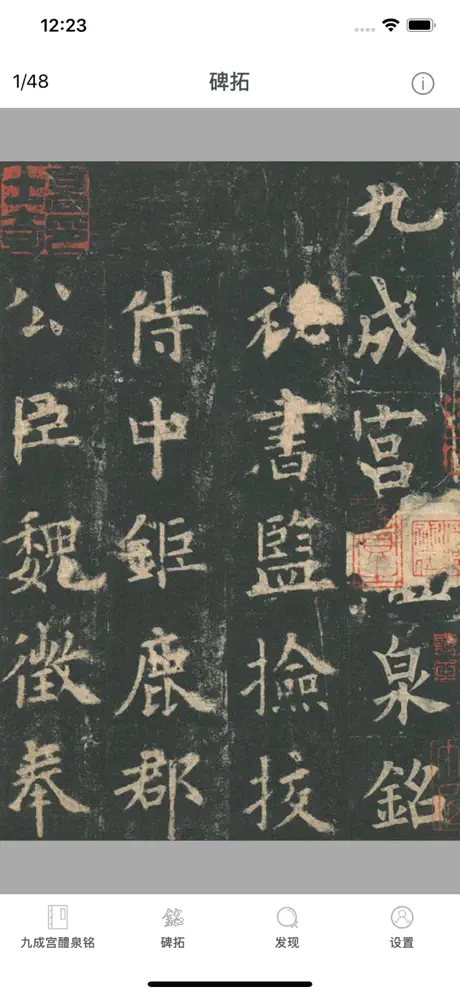 12:23
1/48
碑拓
九成宮泉銘
祕書監撿挍
侍中鉅鹿郡
公臣魏徵奉
九成宫醴泉铭
碑拓
发现
设置